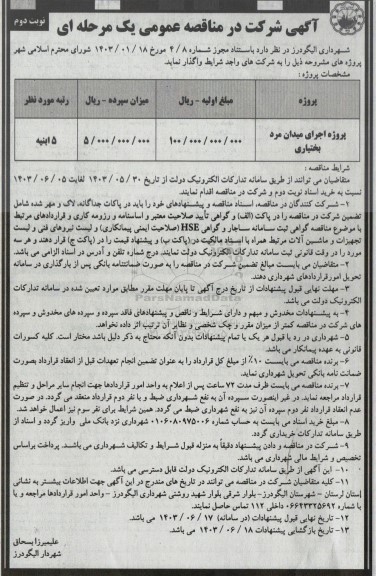 نوبت دوم
آگهی شرکت در مناقصه عمومی یک مرحله ای
شهرداری الیگودرز در نظر دارد باستناد مجوز شماره ۴/۸ مورخ ۱۴۰۳/۰۱/۱۸ شورای محترم اسلامی شهر
پروژه های مشروحه ذیل را به شرکت های واجد شرایط واگذار نماید.
مشخصات پروژه :
پروژه مبلغ اولیه - ریال میزان سپرده - ریال رتبه مورد نظر
پروژه اجرای میدان مرد بختیاری ۱۰۰/۰۰۰/۰۰۰/۰۰۰ ۵/۰۰۰/۰۰۰/۰۰۰ ۵ ابنیه
شرایط مناقصه :
متقاضیان می توانند از طریق سامانه تدارکات الکترونیک دولت از تاریخ ۱۴۰۳/۰۵/۳۰ لغایت ۱۴۰۳/۰۶/۰۵
نسبت به خرید اسناد نوبت دوم و شرکت در مناقصه اقدام نمایند.
۱- شرکت کنندگان در مناقصه، اسناد مناقصه و پیشنهادهای خود را باید در پاکات جداگانه، لاک و مهر شده شامل
تضمین شرکت در مناقصه را در پاکت (الف) و گواهی تأیید صلاحیت معتبر و اساسنامه و رزومه کاری و قراردادهای مرتبط
با موضوع مناقصه گواهی ثبت سامانه ساجار و گواهی HSE (صلاحیت ایمنی پیمانکاری) و لیست نیروهای فنی و لیست
تجهیزات و ماشین آلات مرتبط همراه با اسناد مالکیت در (پاکت ب) و پیشنهاد قیمت را در (پاکت ج) قرار دهند و هر سه
مورد را در وقت قانونی ثبت سامانه تدارکات الکترونیک دولت نمایند. درج شماره تلفن و آدرس در اسناد الزامی می باشد.
۲- متقاضیان می بایست مبالغ تضمین شرکت در مناقصه را به صورت ضمانتنامه بانکی پس از بارگذاری در سامانه
تحویل امور قراردادهای شهرداری دهند.
۳- مهلت نهایی قبول پیشنهادات از تاریخ درج آگهی تا پایان مهلت مقرر مطابق موارد تعیین شده در سامانه تدارکات
الکترونیک دولت می باشد.
۴- به پیشنهادات مخدوش و مبهم و دارای شرایط و ناقص و پیشنهادهای فاقد سپرده و سپرده های مخدوش و سپرده
های شرکت در مناقصه کمتر از میزان مقرر و چک شخصی و نظایر آن ترتیب اثر داده نخواهد.
۵- شهرداری در رد یا قبول هر یک یا تمام پیشنهادات بدون آنکه محتاج به ذکر دلیل باشد مختار است. کلیه کسورات
قانونی به عهده پیمانکار می باشد.
۶- برنده مناقصه می بایست ۱۰٪ از مبلغ کل قرارداد را به عنوان تضمین انجام تعهدات قبل از انعقاد قرارداد بصورت
ضمانت نامه بانکی تحویل شهرداری نماید.
۷- برنده مناقصه می بایست ظرف مدت ۷۲ ساعت پس از اعلام به واحد امور قراردادها جهت انجام سایر مراحل و تنظیم
قرارداد مراجعه نماید. در غیر اینصورت سپرده آن به نفع شهرداری ضبط و با نفر دوم قرارداد منعقد می گردد. در صورت
عدم انعقاد قرارداد نفر دوم سپرده آن نیز به نفع شهرداری ضبط می گردد. همین شرایط برای نفر سوم نیز اعمال خواهد شد.
۸- مبلغ خرید اسناد می بایست به حساب شماره ۰۱۰۶۰۸۰۹۷۵۰۰۶ شهرداری نزد بانک ملی واریز گردد و اسناد از
طریق سامانه تدارکات خریداری گردد.
۹- شرکت در مناقصه و دادن پیشنهاد دقیقاً به منزله قبول شرایط و تکالیف شهرداری می باشد. پرداخت براساس
تخصیص و شرایط مالی شهرداری می باشد.
۱۰- این آگهی از طریق سامانه تدارکات الکترونیک دولت قابل دسترسی می باشد.
۱۱- کلیه متقاضیان شرکت در مناقصه می توانند در تاریخ های مندرج در این آگهی جهت اطلاعات بیشتر به نشانی
استان لرستان - شهرستان الیگودرز - بلوار شرقی بلوار شهید روشنی شهرداری الیگودرز - واحد امور قراردادها مراجعه و یا
با شماره ۰۶۶۴۳۳۲۵۶۹۲ داخلی ۱۱۲ تماس حاصل نمایند.
۱۲- تاریخ نهایی قبول پیشنهادات (در سامانه) ۱۴۰۳/۰۶/۱۷ می باشد.
۱۳- تاریخ بازگشایی پیشنهادات ۱۴۰۳/۰۶/۱۸ می باشد.
علیمیرزا یسحاق
شهردار الیگودرز
ParsNamadData